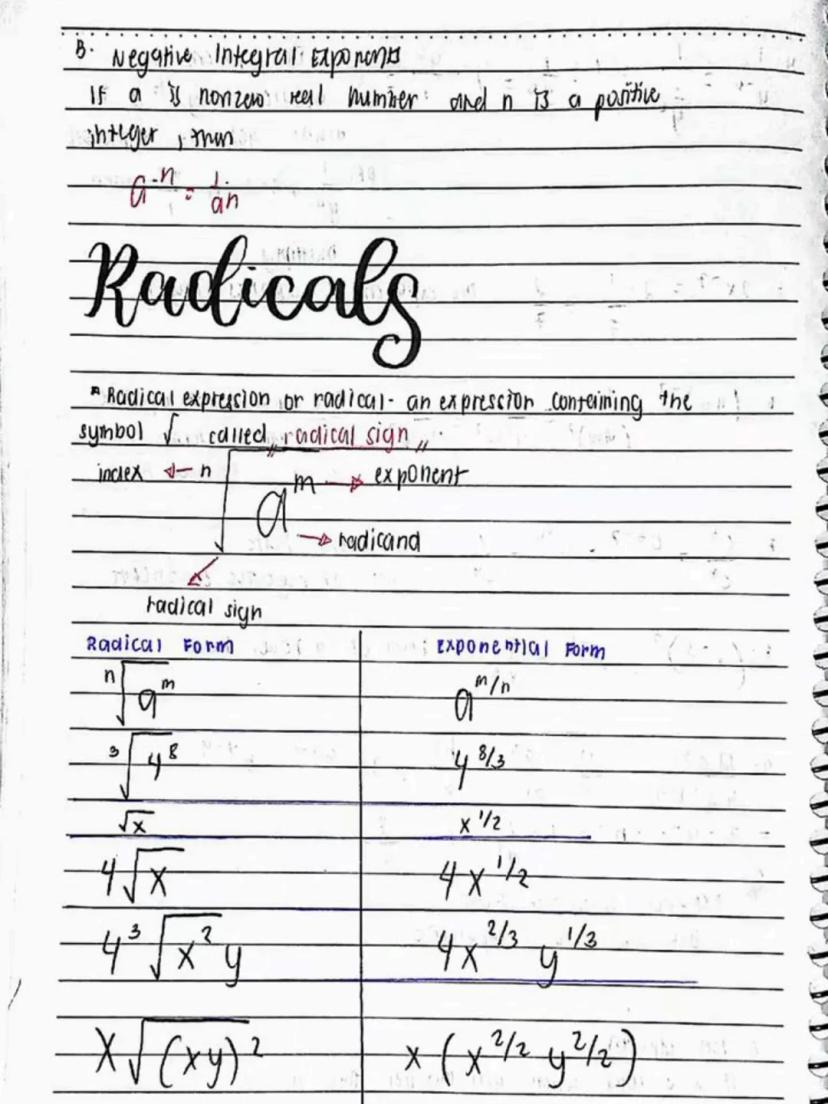 B. Negative Integral Exponents
If a is nonzero real number and n is a positive
integer, then
a⁻ⁿ = 1/aⁿ
Radicals
*Radical expression or radical - an expression containing the
symbol √ called „radical sign„
index ← n√aᵐ → exponent
→ radicand
radical sign
Radical Form Exponential Form
ⁿ√aᵐ a^m/n
³√4⁸ 4^8/3
√x x^1/2
4√x 4x^1/2
4 ³√x²y 4x^2/3 y^1/3
x√(xy)² x(x^2/2 y^2/2)